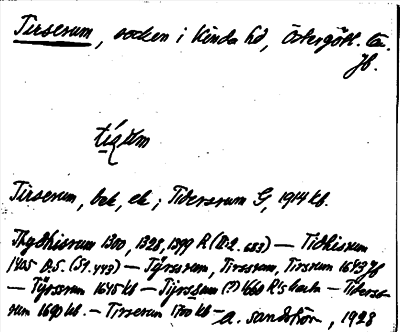 Tirserum, socken i Kinda hd, Östergötl. län.
Jb.
Tirserum, bek, ek; Tidersrum G, 1914 kb.
Thydhisrum 1300, 1328, 1399 R (DD2. 683) — Tidhisrum
1405 D.S. (S1. 443) — Tyrssrum, Tirssrum, Tirsrum 1643 Jb
— Tyrserum 1645 kb — Tijrssrum (?) 1660 RS bach — Tiderse-
rum 1690 kb. — Tirserum 1700 kb —
A. Sandström, 1928